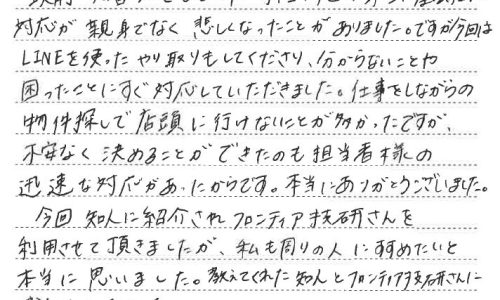 対応が親身でなく悲しくなったことがありました。ですが今回は
LINEを使ったやり取りもしてくださり、分からないことや
困ったことにすぐ対応していただきました。仕事をしながらの
物件探しで店頭に行けないことが多かったですが、
不安なく決めることができたのも担当者様の
迅速な対応があったからです。本当にありがとうございました。
今回知人に紹介されフロンティア技研さんを
利用させて頂きましたが、私も周りの人にすすめたいと
本当に思いました。教えてくれた知人とフロンティア技研さんに